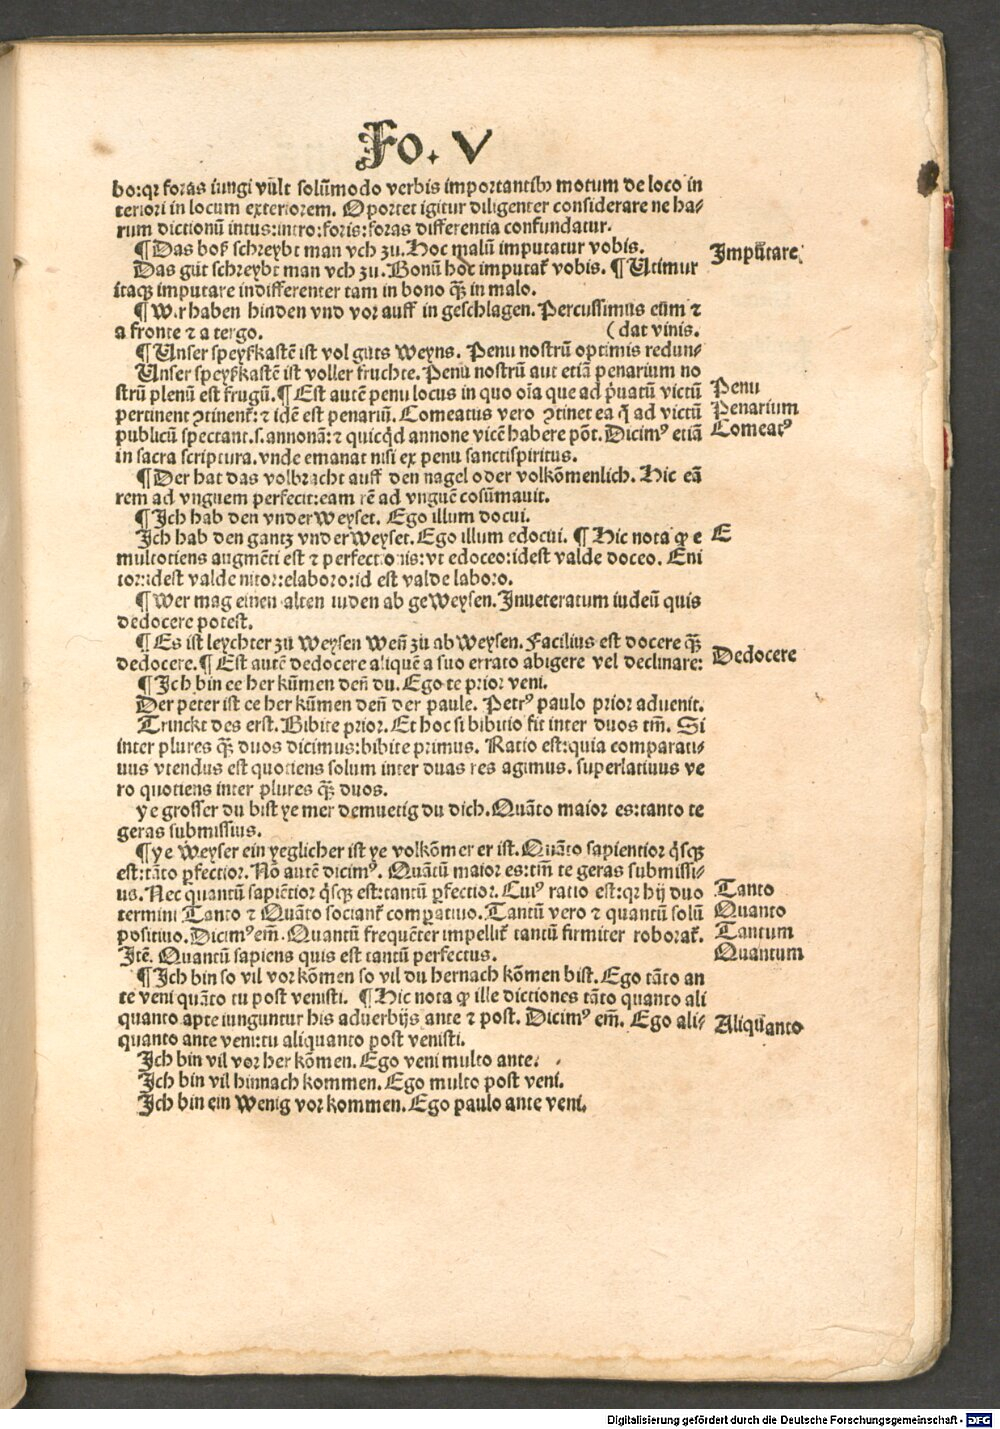 Fo. V
bo:qꝛ foras iungi vult solūmodo verbis importantibꝫ motum de loco in
teriori in locum exteriorem. Oportet igitur diligenter considerare ne ha⸗
rum dictionū intus:intro:foris:foras differentia confundatur.
¶ Das boß schreybt man vch zu. Hoc malū imputatur vobis.
Imputare
Das gut schreybt man vch zu. Bonū hoc imputat᷑ vobis. ¶ Utimur
itaqꝫ imputare indifferenter tam in bono qꝫ̄ in malo.
¶ Wir haben hinden vnd vor auff in geschlagen. Percussimus eūm ⁊
a fronte ⁊ a tergo. (dat vinis.
¶ Unser speyßkastē ist vol guts weyns. Penu nostrū optimis redun⸗
Unser speyßkastē ist voller fruchte. Penu nostrū aut etiā penarium no
strū plenū est frugū. ¶ Est autē penu locus in quo oīa que ad p̄uatū victū
Penu
pertinent ꝯtinent᷑:⁊ idē est penariū. Comeatus vero ꝯtinet ea q̄ ad victū
Penarium
publicū spectant.s.annonā:⁊ quicqͥd annone vicē habere pōt. Dicimꝰ etiā
Comeatꝰ
in sacra scriptura. vnde emanat nisi ex penu sanctispiritus.
¶ Der hat das volbracht auff den nagel oder volkōmenlich. Hic eā
rem ad vnguem perfecit:eam rē ad vnguē cōsūmauit.
¶ Ich hab den vnderweyset. Ego illum docui.
Ich hab den gantz vnderweyset. Ego illum edocui. ¶ Hic nota ꝙ e
E
multotiens augmēti est ⁊ perfectionis:vt edoceo:idest valde doceo. Eni
tor:idest valde nitor:elaboro:id est valde laboro.
¶ Wer mag einen alten iuden ab geweysen. Inueteratum iudeū quis
dedocere potest.
¶ Es ist leychter zu weysen wen̄ zu abweysen. Facilius est docere qꝫ̄
dedocere. ¶ Est autē dedocere aliquē a suo errato abigere vel declinare:
Dedocere
¶ Ich bin ee her kūmen den̄ du. Ego te prior veni.
Der peter ist ee her kūmen den̄ der paule. Petrꝰ paulo prior aduenit.
Trinckt des erst. Bibite prior. Et hoc si bibitio fit inter duos tm̄. Si
inter plures qꝫ̄ duos dicimus:bibite primus. Ratio est:quia comparati⸗
uus vtendus est quotiens solum inter duas res agimus. superlatiuus ve
ro quotiens inter plures qꝫ̄ duos.
ye grosser du bist ye mer demuetig du dich. Quāto maior es:tanto te
geras submissius.
¶ ye weyser ein yeglicher ist ye volkōmer er ist. Quāto sapientior qͥsqꝫ
est:tāto ꝑfectior. Nō autē dicimꝰ. Quantū maior es:tm̄ te geras submissi⸗
us. Nec quantū sapiētior qͥsqꝫ est:tantū ꝑfectior. Cuiꝰ ratio est:qꝛ hij duo
Tanto
termini Tanto ⁊ Quāto sociant᷑ comꝑatiuo. Tantū vero ⁊ quantū solū
Quanto
positiuo. Dicimꝰ em̄. Quantū frequēter impellit᷑ tantū firmiter roborat᷑.
Tantum
Itē. Quantū sapiens quis est tantū perfectus.
Quantum
¶ Ich bin so vil vor kōmen so vil du hernach kōmen bist. Ego tāto an
te veni quāto tu post venisti. ¶ Hic nota ꝙ ille dictiones tāto quanto ali
quanto apte iunguntur his aduerbijs ante ⁊ post. Dicimꝰ em̄. Ego ali⸗
Aliquanto
quanto ante veni:tu aliquanto post venisti.
Ich bin vil vor her kōmen. Ego veni multo ante.
Ich bin vil hinnach kommen. Ego multo post veni.
Ich bin ein wenig vor kommen. Ego paulo ante veni.
Digitalisierung gefördert durch die Deutsche Forschungsgemeinschaft - DFG